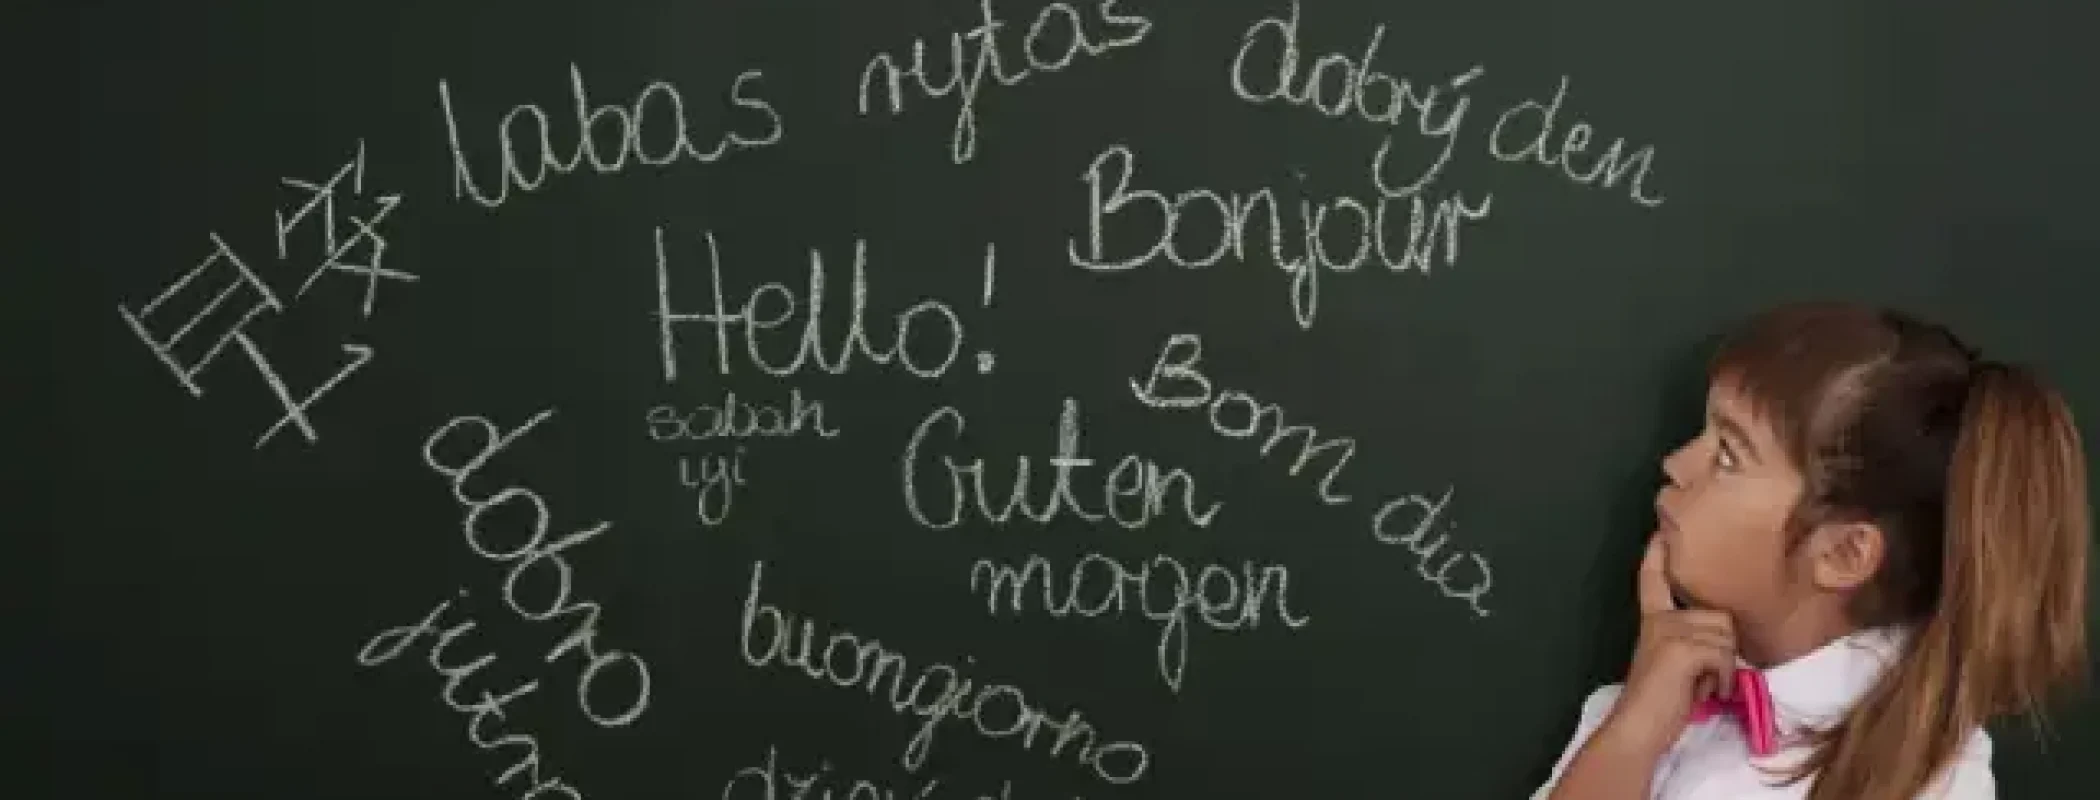 labas rytas
dobrý den
早上好
Bonjour
Hello!
Bom dia
sabah
iyi
Guten
magen
dobro
jutro
buongiorno
dzień